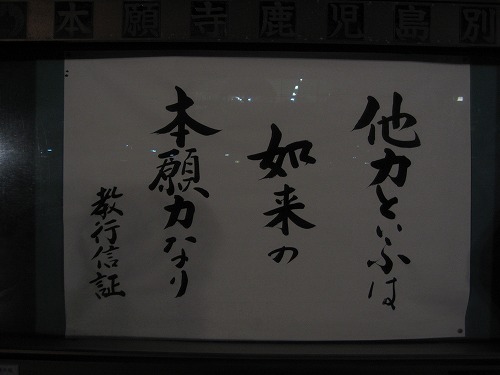 本願寺鹿児島別
他力といふは
如来の
本願力なり
教行信証